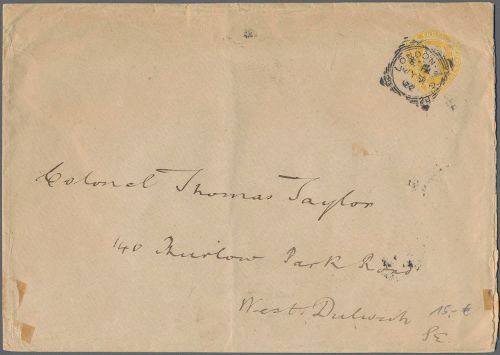 LONDON
Colonel Thomas Taylor
140 Thurlow Park Road
West Dulwich
15,- €